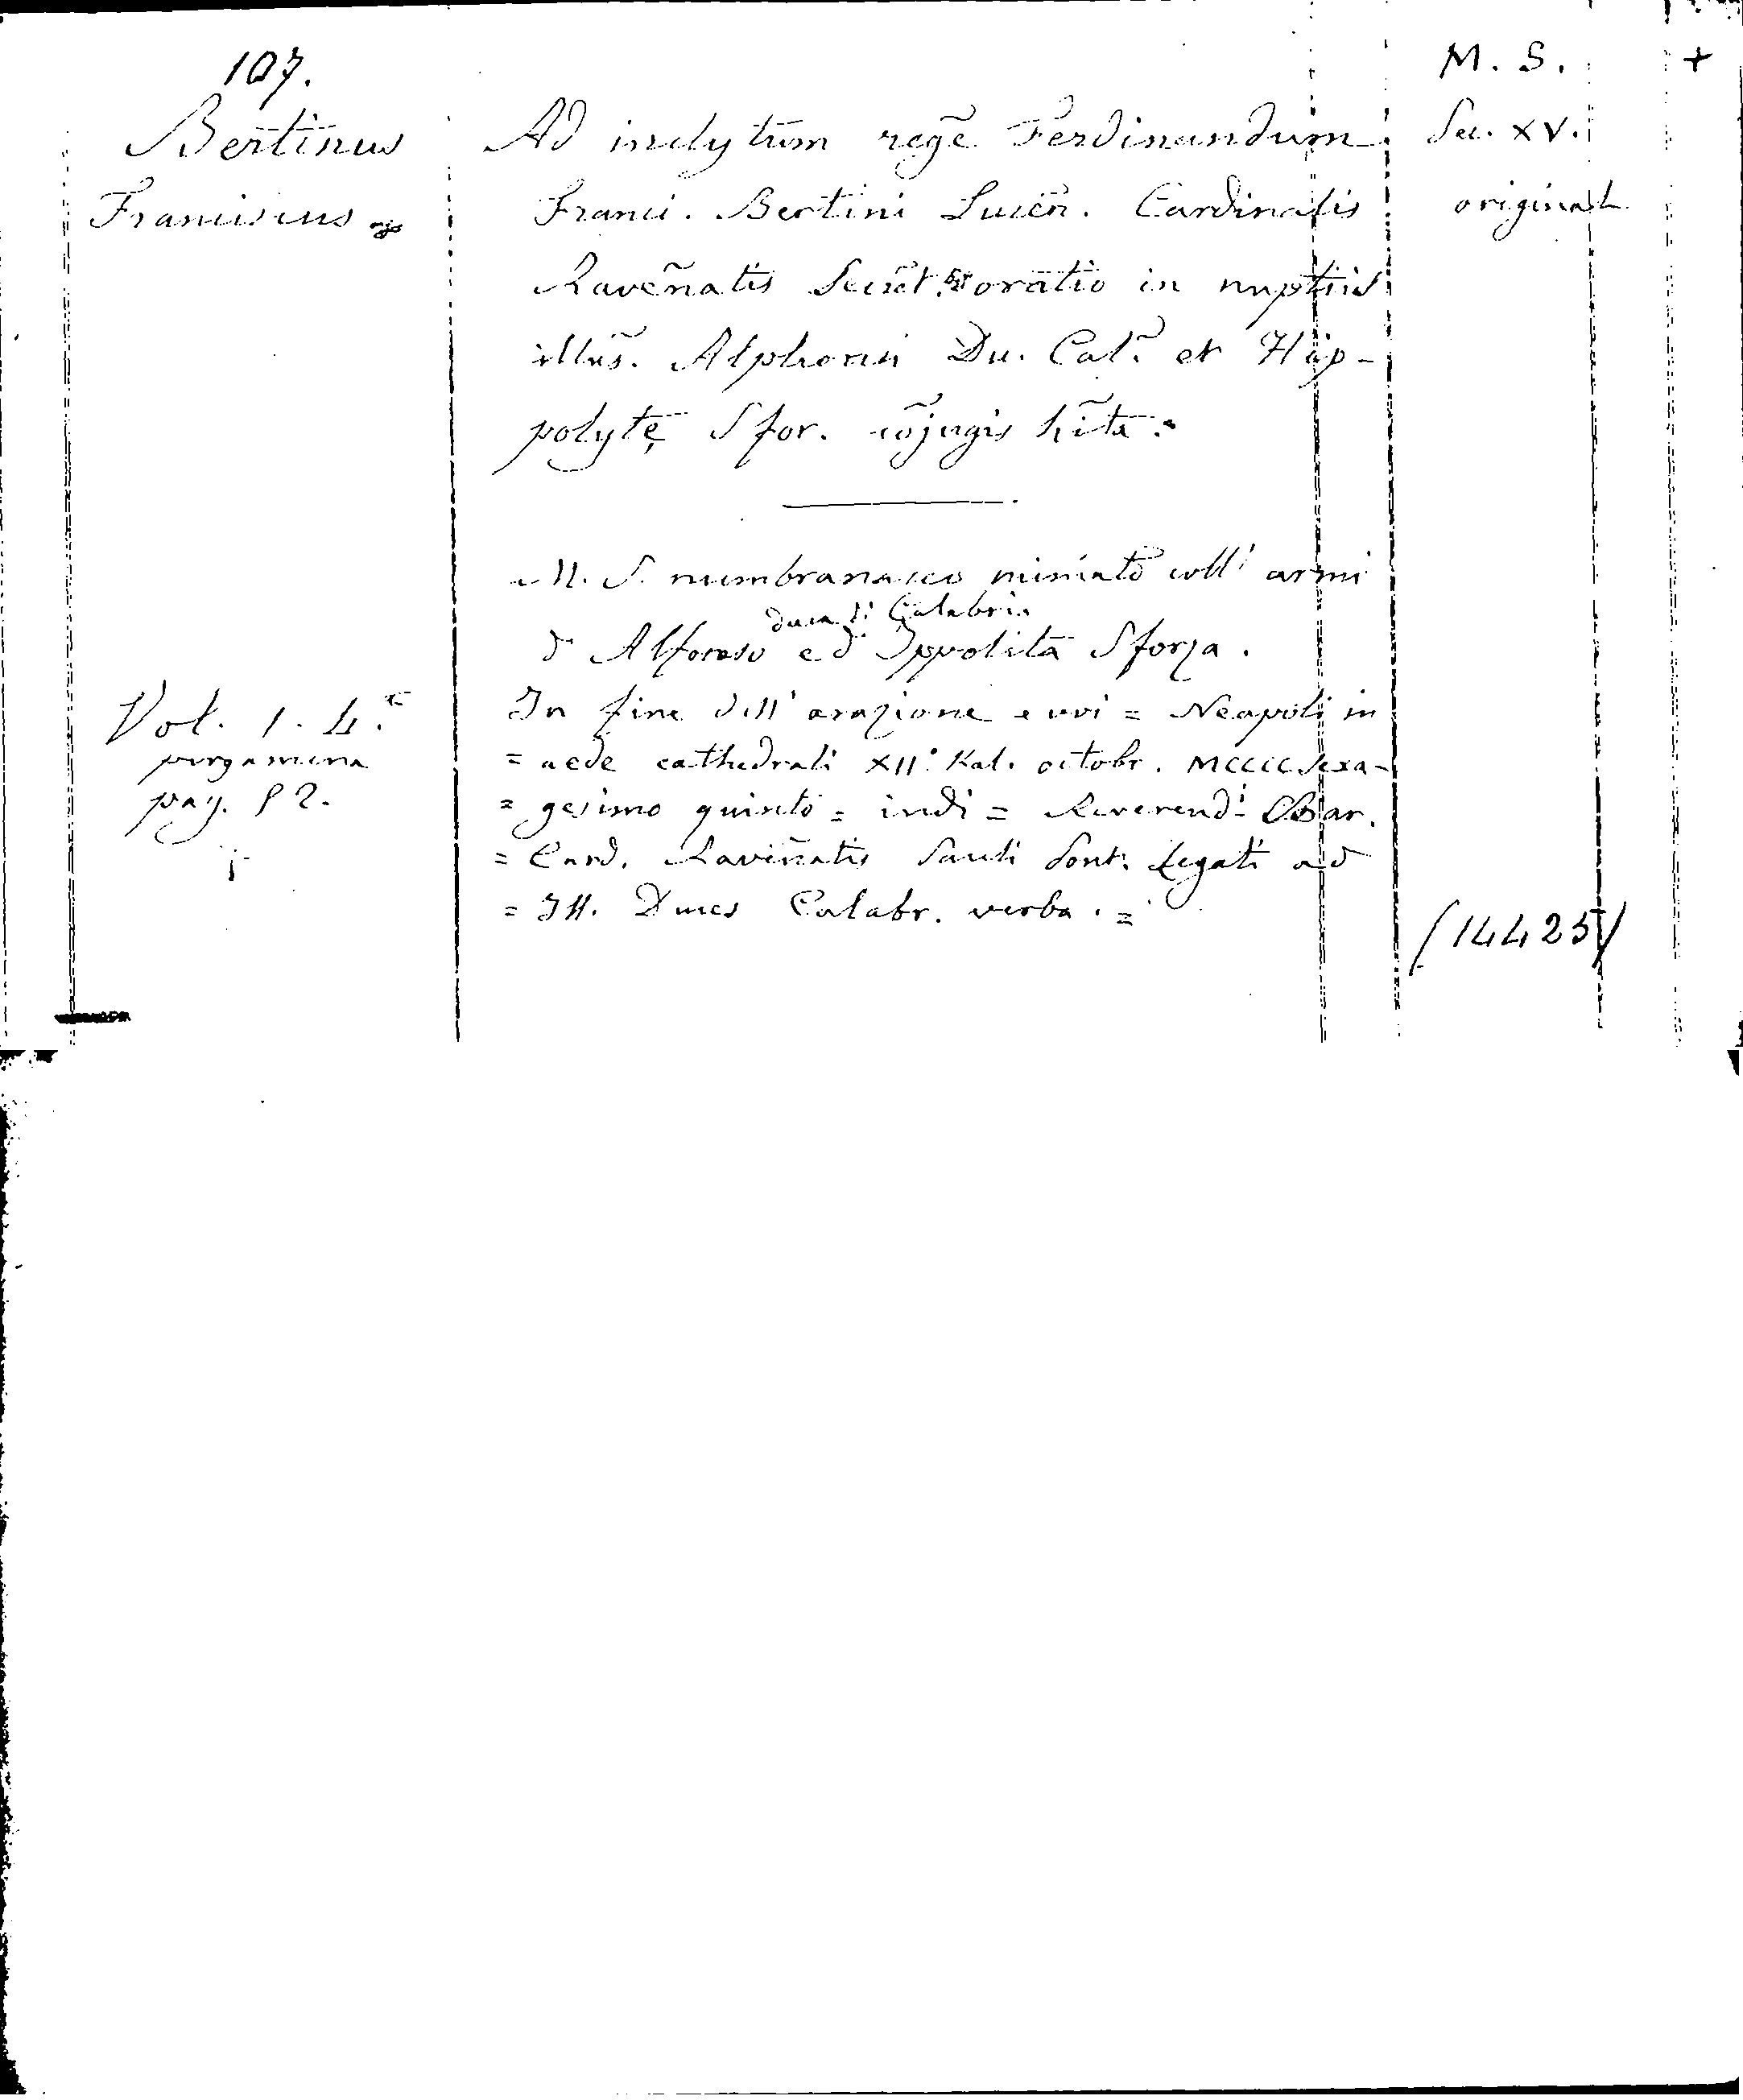 107.
Bertinus
Franciscus
Ad inclytum regē Ferdinandum
Franci. Bertini Lucēn. Cardinalis
Raveñatis Secret. oratio in nuptiis
illus̃. Alphonsi Du. Cal. et Hip-
polytę Sfor. cōjugis hita =
M. S. membranaceo miniato coll' armi
duca di Calabria
d' Alfonso ed Ippolita Sforza.
In fine dell' orazione evvi = Neapoli in
= aede cathedrali XII. Kal. octobr. MCCCC Sexa-
= gesimo quinto = indi = Reverend. Bar.
= Card. Raveñatis Pont. Legati ad
= Ill. Duces Calabr. verba. =
Vol. 1. 4.
pergamena
pag. 82.
M. S.
Sec. XV.
original
+
(14425)